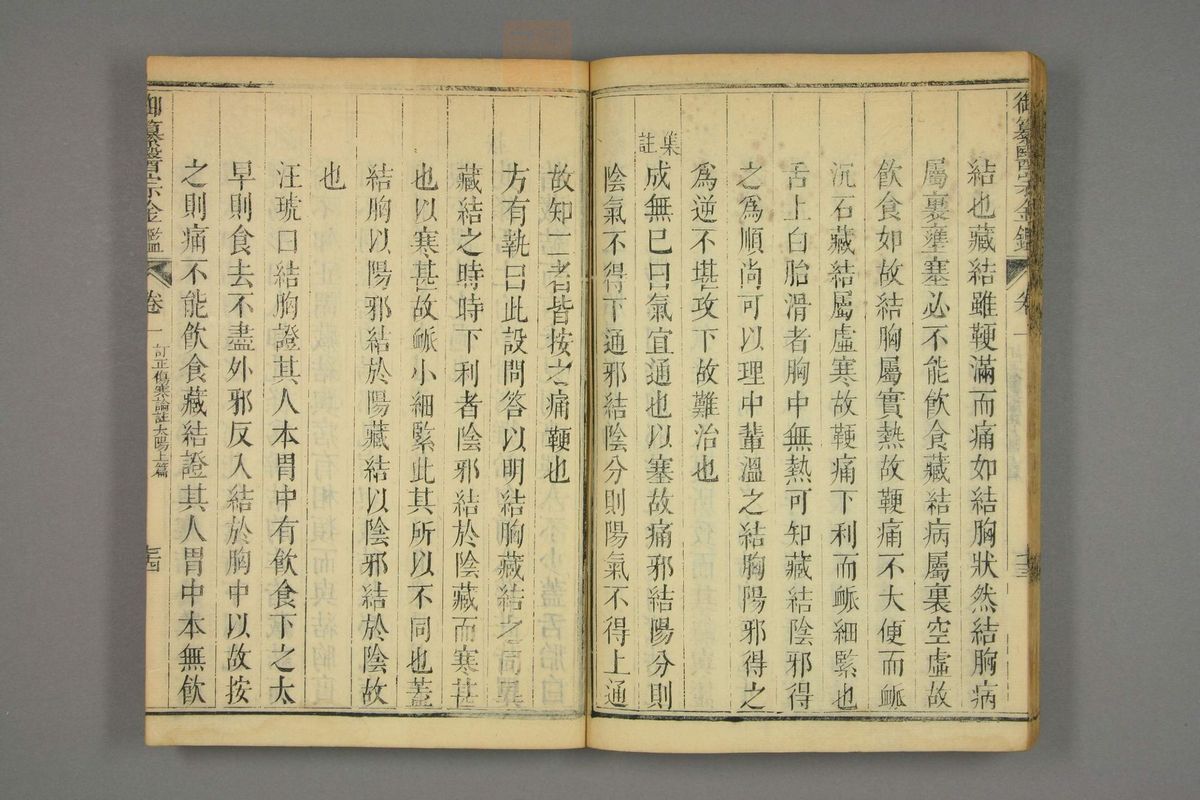 御纂醫宗金鑑
卷一
結也藏結雖鞕滿而痛如結胸狀然結胸病
屬裏壅塞必不能飲食藏結病屬裏空虛故
飲食如故結胸屬實熱故鞕痛不大便而脈
沉石藏結屬虛寒故鞕痛下利而脈細緊也
舌上白胎滑者胸中無熱可知藏結陰邪得
之爲順尚可以理中輩溫之結胸陽邪得之
爲逆不堪攻下故難治也
集註
成無已曰氣宜通也以塞故痛邪結陽分則
陰氣不得下通邪結陰分則陽氣不得上通
故知二者皆按之痛鞕也
方有執曰此設問答以明結胸藏結之同異
藏結之時時下利者陰邪結於陰藏而寒甚
也以寒甚故脈小細緊此其所以不同也蓋
結胸以陽邪結於陽藏結以陰邪結於陰故
也
汪琥曰結胸證其人本胃中有飲食下之太
早則食去不盡外邪反入結於胸中以故按
之則痛不能飲食藏結證其人胃中本無飲
御纂醫宗金鑑
卷一
訂正傷寒論註太陽上篇